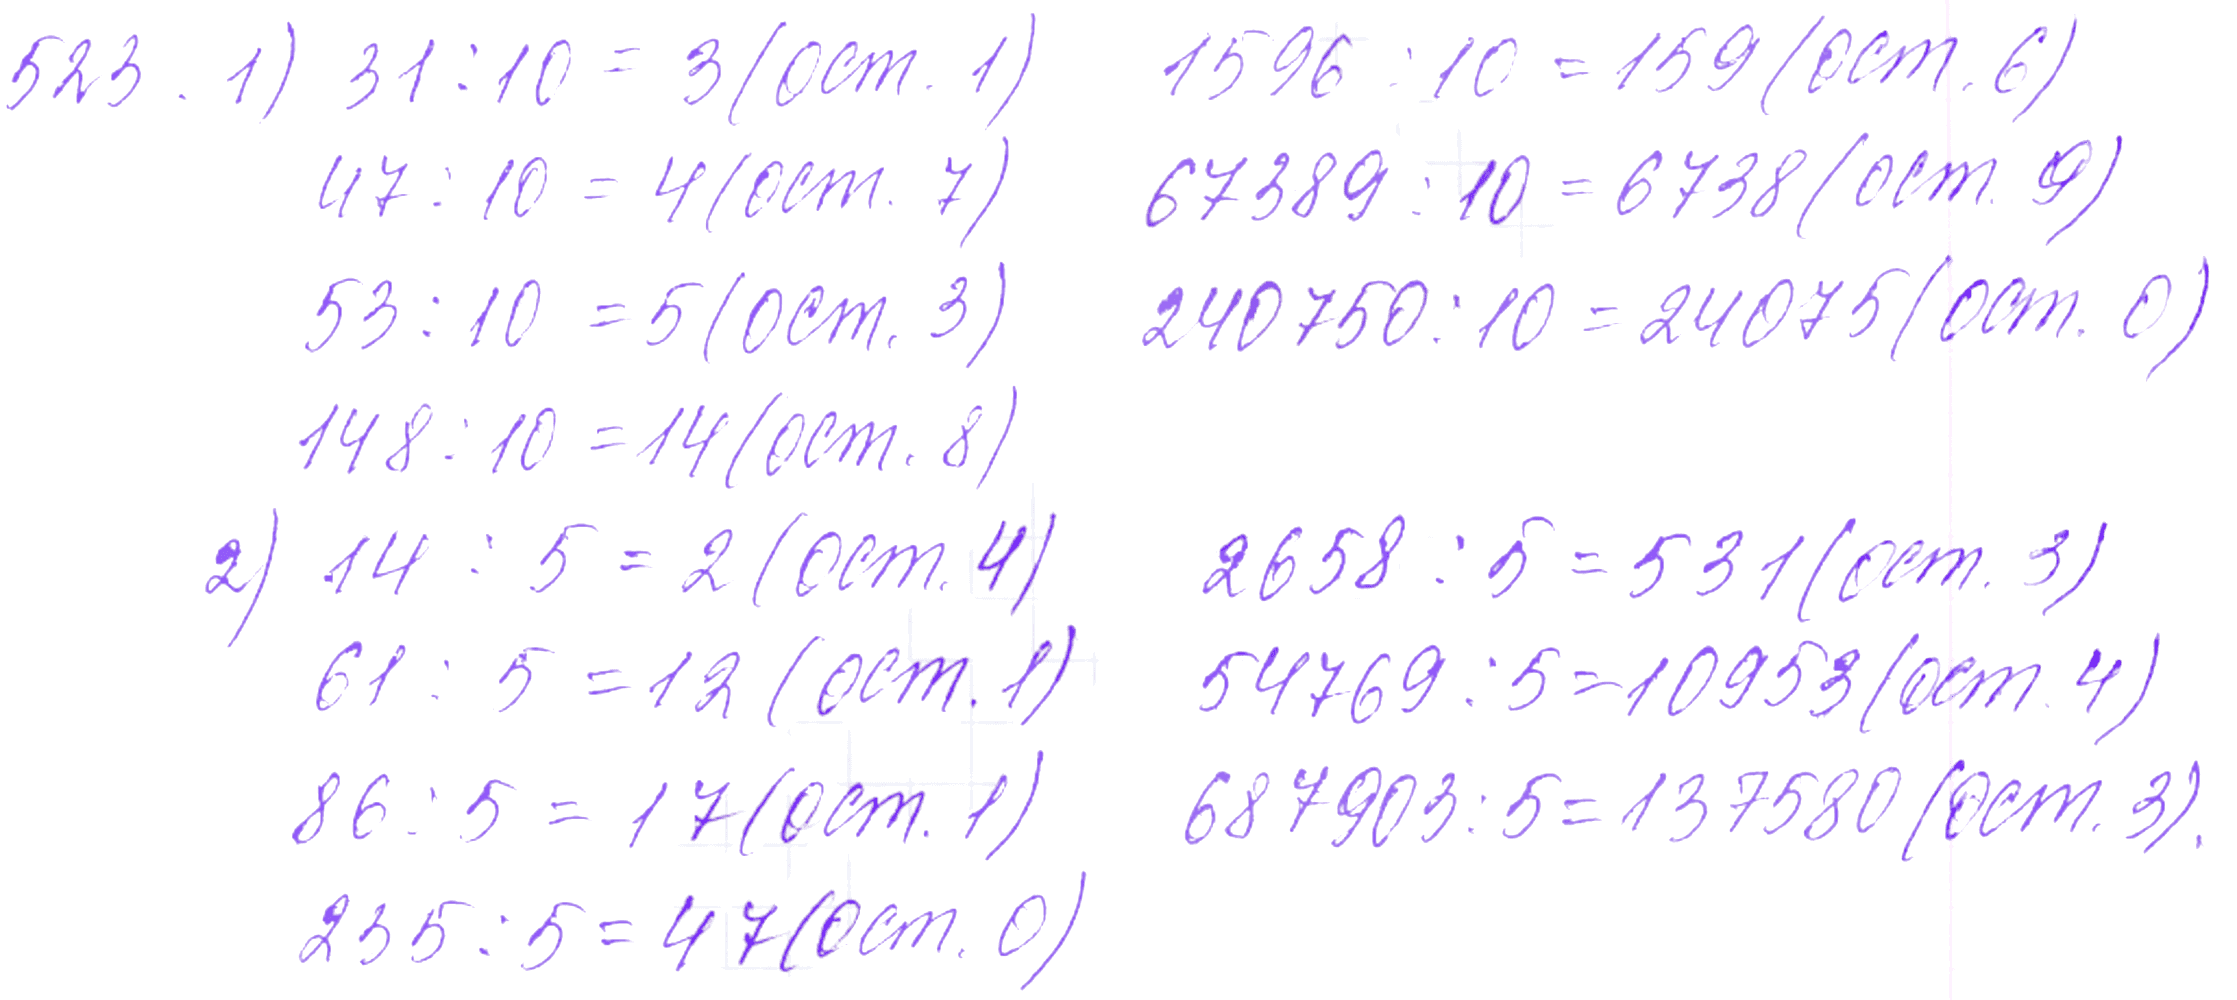 523. 1) 31 : 10 = 3 (ост. 1)
47 : 10 = 4 (ост. 7)
53 : 10 = 5 (ост. 3)
148 : 10 = 14 (ост. 8)
1596 : 10 = 159 (ост. 6)
67389 : 10 = 6738 (ост. 9)
240750 : 10 = 24075 (ост. 0)
2) 14 : 5 = 2 (ост. 4)
61 : 5 = 12 (ост. 1)
86 : 5 = 17 (ост. 1)
235 : 5 = 47 (ост. 0)
2658 : 5 = 531 (ост. 3)
54769 : 5 = 10953 (ост. 4)
687903 : 5 = 137580 (ост. 3).